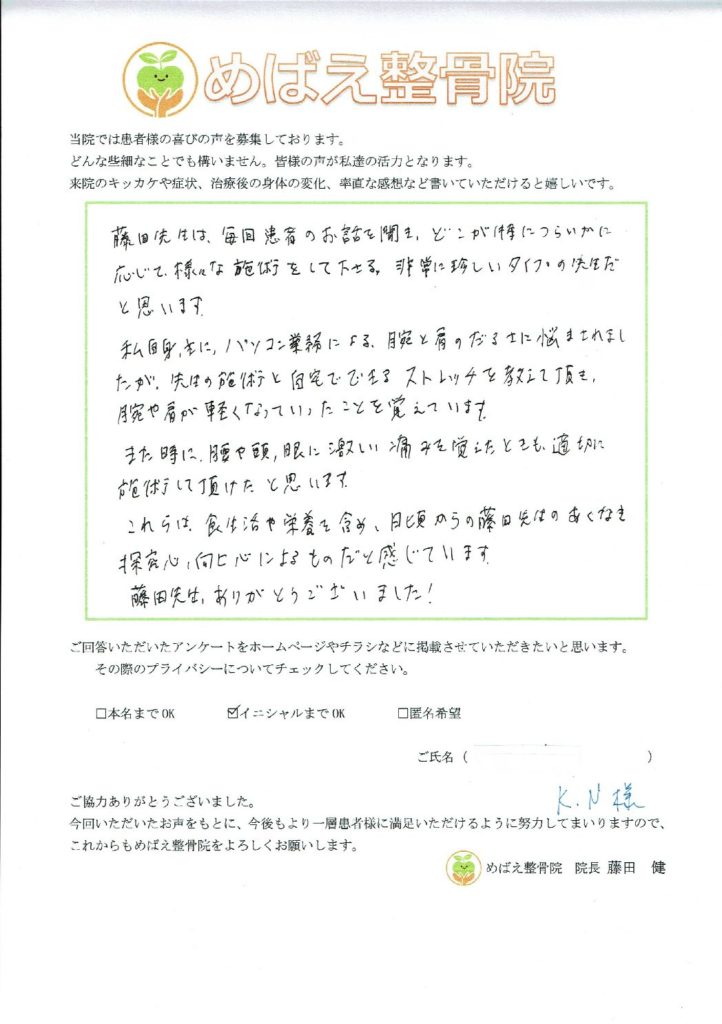 めばえ整骨院
当院では患者様の喜びの声を募集しております。
どんな些細なことでも構いません。皆様の声が私達の活力となります。
来院のキッカケや症状、治療後の身体の変化、率直な感想など書いていただけると嬉しいです。
藤田先生は、毎回患者のお話を聞き、どこが特につらいかに
応じて、様々な施術をして下さる、非常に珍しいタイプの先生だ
と思います。
私自身、主に、パソコン業務による、腕と肩のだるさに悩まされまし
たが、先生の施術と自宅でできるストレッチを教えて頂き、
腕や肩が軽くなっていったことを覚えています。
また時に、腰や頭、眼に激しい痛みを覚えたときも、適切に
施術して頂けたと思います。
これらは、食生活や栄養を含め、日頃からの藤田先生のあくなき
探究心、向上心によるものだと感じています。
藤田先生、ありがとうございました!
ご回答いただいたアンケートをホームページやチラシなどに掲載させていただきたいと思います。
その際のプライバシーについてチェックしてください。
□本名までOK ☑イニシャルまでOK □匿名希望
ご氏名( )
K.N様
ご協力ありがとうございました。
今回いただいたお声をもとに、今後もより一層患者様に満足いただけるように努力してまいりますので、
これからもめばえ整骨院をよろしくお願いします。
めばえ整骨院 院長 藤田 健